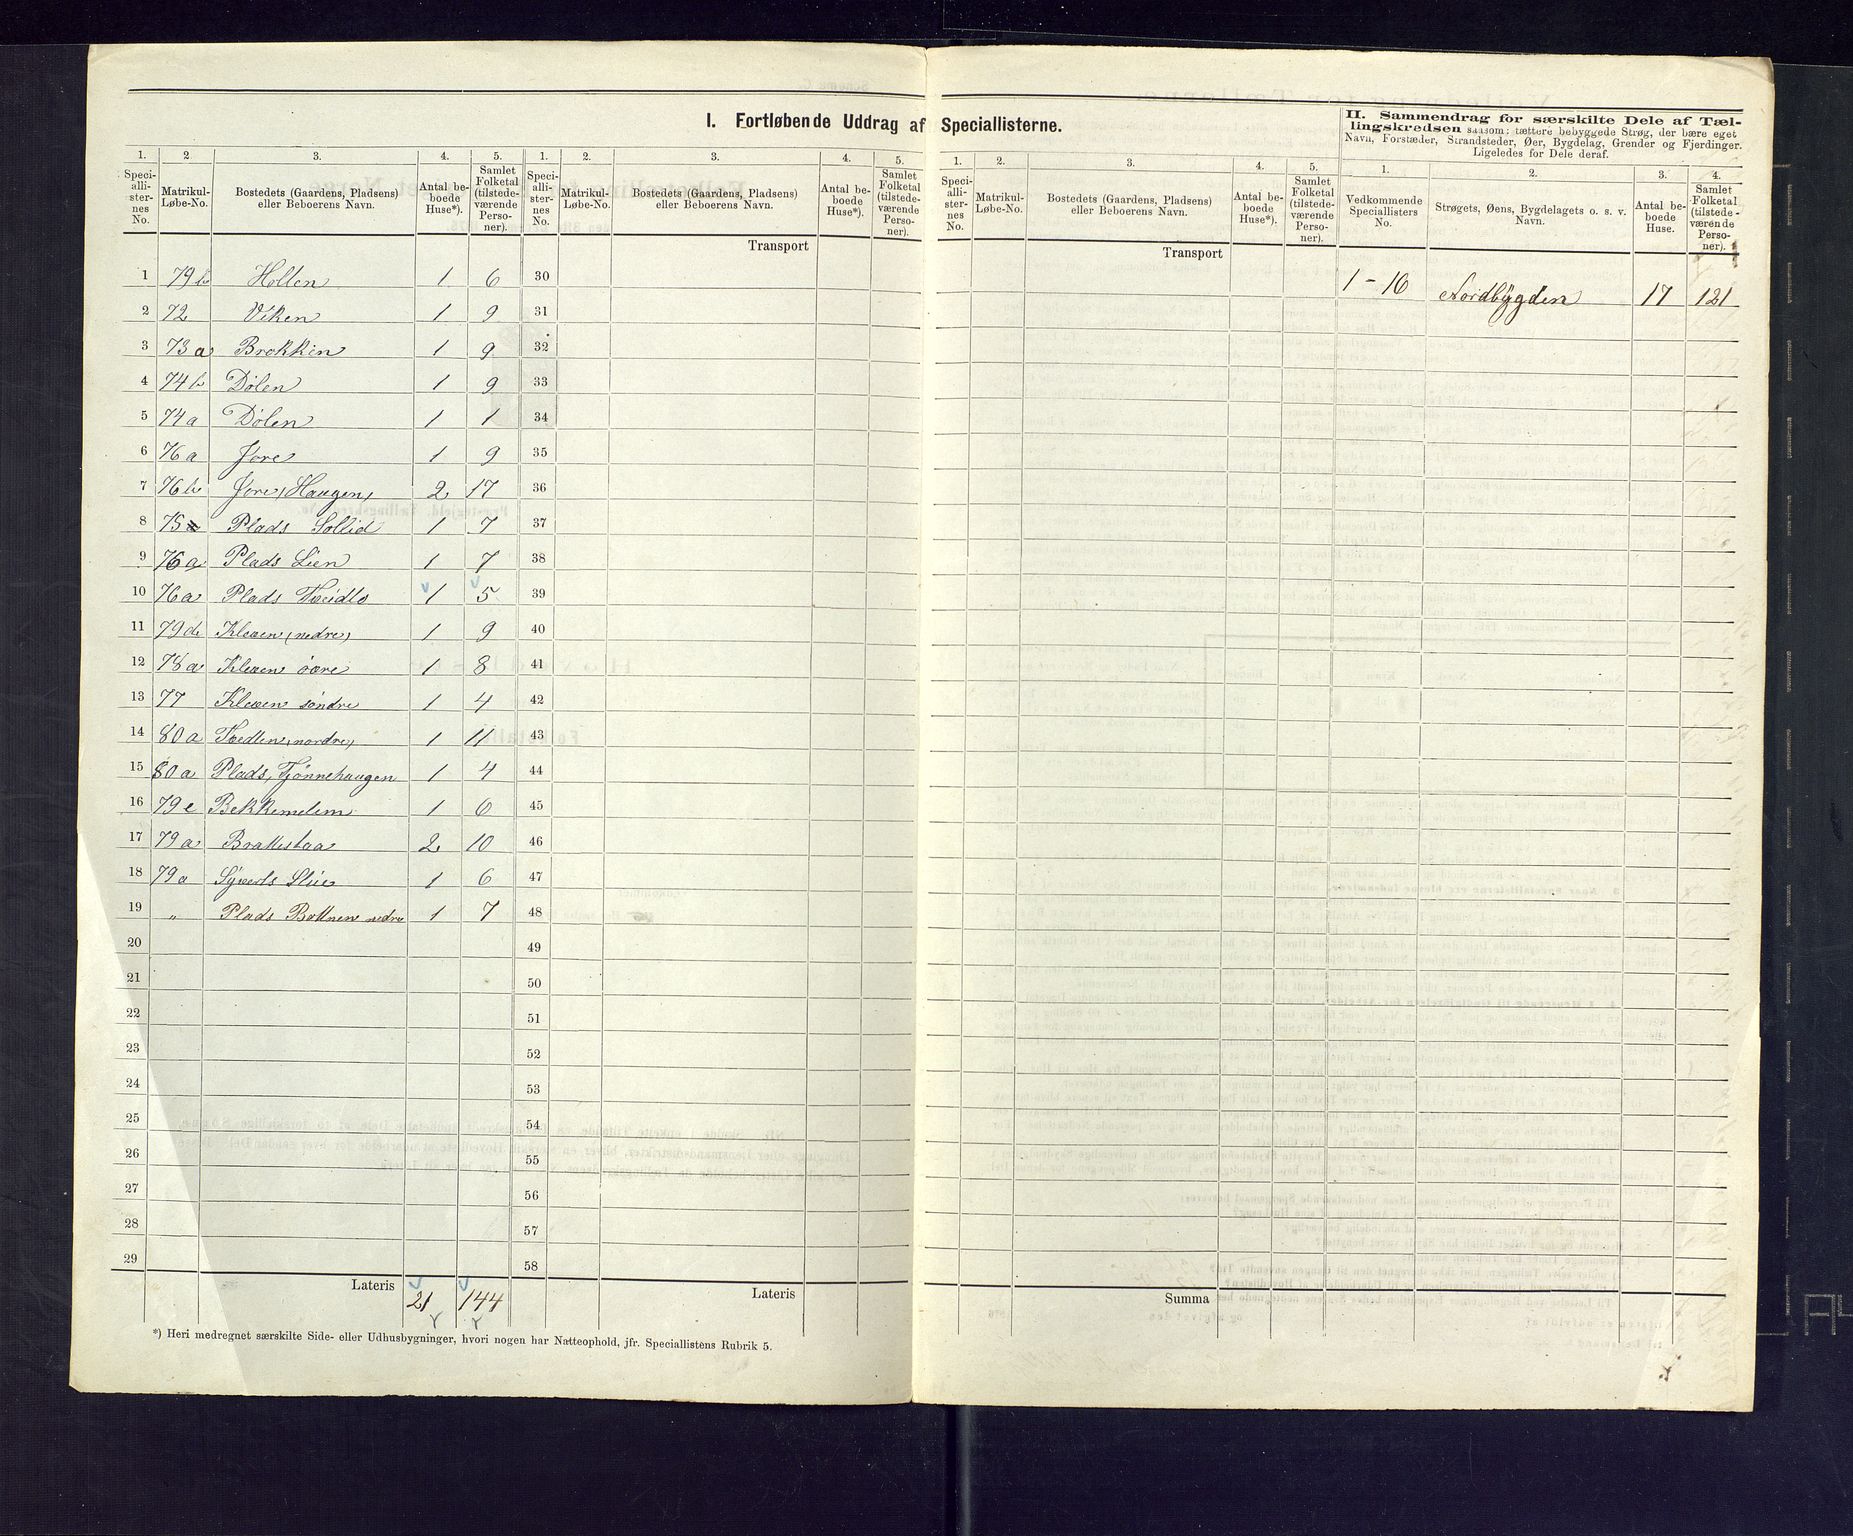 I. Fortløbende Uddrag af Speciallisterne.
II. Sammendrag for særskilte Dele af Tællingskredsen saasom: tættere bebyggede Strøg, der bære eget
Navn, Forstæder, Strandsteder, Øer, Bygdelag, Grender og Fjerdinger.
Ligeledes for Dele deraf.
1. 2. 3. 4. 5. 1. 2. 3. 4. 5. 1. 2. 3. 4. 5. 1. 2. 3. 4.
Speciallisternes No. Matrikul-Løbe-No. Bostedets (Gaardens, Pladsens) eller Beboerens Navn. Antal beboede Huse*). Samlet Folketal (tilstedeværende Personer).
Speciallisternes No. Matrikul-Løbe-No. Bostedets (Gaardens, Pladsens) eller Beboerens Navn. Antal beboede Huse*). Samlet Folketal (tilstedeværende Personer).
Speciallisternes No. Matrikul-Løbe-No. Bostedets (Gaardens, Pladsens) eller Beboerens Navn. Antal beboede Huse*). Samlet Folketal (tilstedeværende Personer).
Vedkommende Speciallisters No. Strøgets, Øens, Bygdelagets o. s. v. Navn. Antal beboede Huse. Samlet Folketal (tilstedeværende Personer).
Transport Transport
1 79b Hollen 1 6 30 1-16 Nordbygden 17 121
2 72 Viken 1 9 31
3 73a Brokken 1 9 32
4 74b Dølen 1 9 33
5 74a Dølen 1 1 34
6 76a Jore 1 9 35
7 76b Jore, Haugen, 2 17 36
8 75 Plads Sollid 1 7 37
9 76a Plads Lien 1 7 38
10 76a Plads 1 5 39
11 79d Kleven, nedre, 1 9 40
12 78a Kleven øvre 1 8 41
13 77 Kleven søndre 1 4 42
14 80a nordre, 1 11 43
15 80a Plads, Tjønnehaugen 1 4 44
16 79e Bekkemelem 1 6 45
17 79a Brattestaa 2 10 46
18 79a Syverts 1 6 47
19 " Plads Bottnen nedre 1 7 48
20 49
21 50
22 51
23 52
24 53
25 54
26 55
27 56
28 57
29 58
Lateris 21 144 Lateris Summa
*) Heri medregnet særskilte Side- eller Udhusbygninger, hvori nogen har Natteophold, jfr. Speciallistens Rubrik 5.